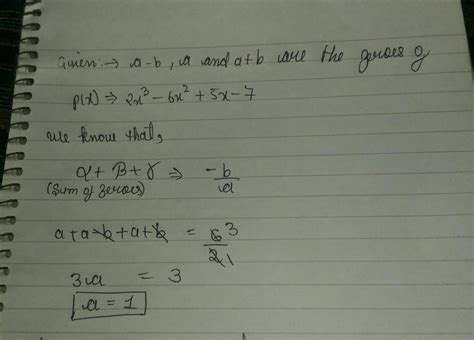 Given:→ a-b, a and a+b are the zeroes of
p(x) ⇒ 2x³ - 6x² + 5x - 7
we know that,
α + β + γ ⇒ -b/a
(sum of zeroes)
a + a - b + a + b = 6/2 3/1
3a = 3
a = 1